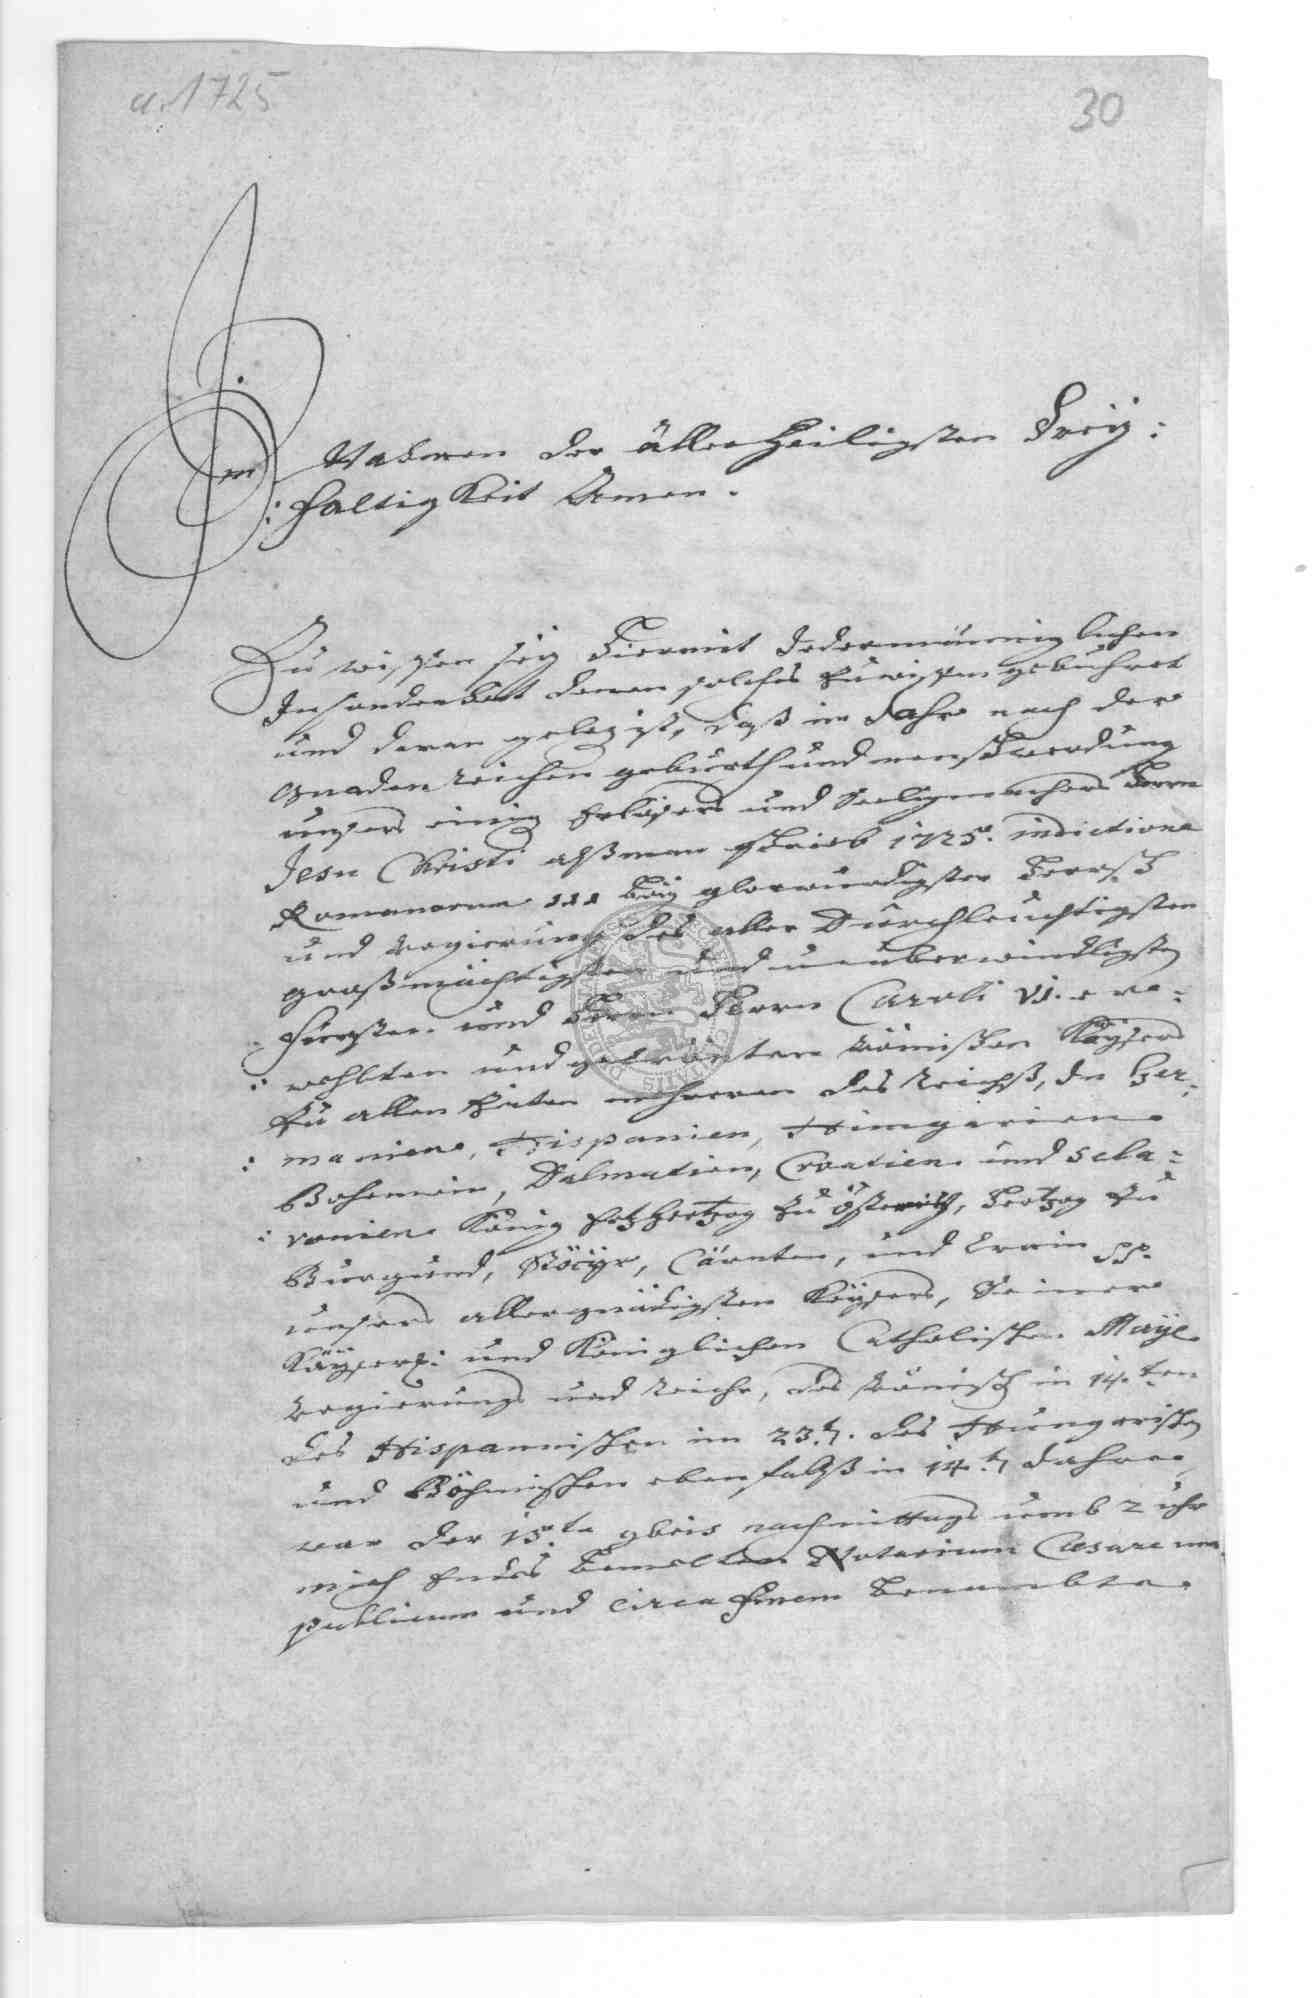 a. 1725
30
Im Nahmen der allerheiligsten Drey:
:faltigkeit Amen.
Zu wissen sey hiermit Jedermänniglichen
Insonderheit denen solches zuwissen gebühret
und daran gelegist, daß im Jahr nach der
gnadenreichen geburth und menschwerdung
unsers einig Erlösers und Seeligmachers Herrn
Jesu Christi alßman schrieb 1725. indictione
Romanorum III bey glorwürdigster Herrsch
und regierung des aller Durchleuchtigsten
großmächtigsten und unüberwindligsten
Fürsten und Herrn Herrn Caroli VI. erve=
: wehlten und gekrönten Römischen Kaysers
zu allen Zeiten mehreren des Reichß, in Ger=
: maniens, Hispanien, Hungarien
Bohemein, Dalmatien, Croatien und Scla=
: vonien König Ertzhertzog zu Österreich, Hertzog zu
Burgund, Steyr, Cärnten, und Crain pp.
unsers allergnädigsten Keysers, Seiner
Käyserl: und Königlichen Catholischen Maye.
regierungs und Reiche, des Römisch in 14.ten
des Hispannischen im 23.t. des Hungarischen
und Böhmischen ebenfalß in 14.t Jahre
war der 15.te nachmittags umb 2 uhr
mich Endes bemelten Notarium Caesareum
publicum und circa finem benambte